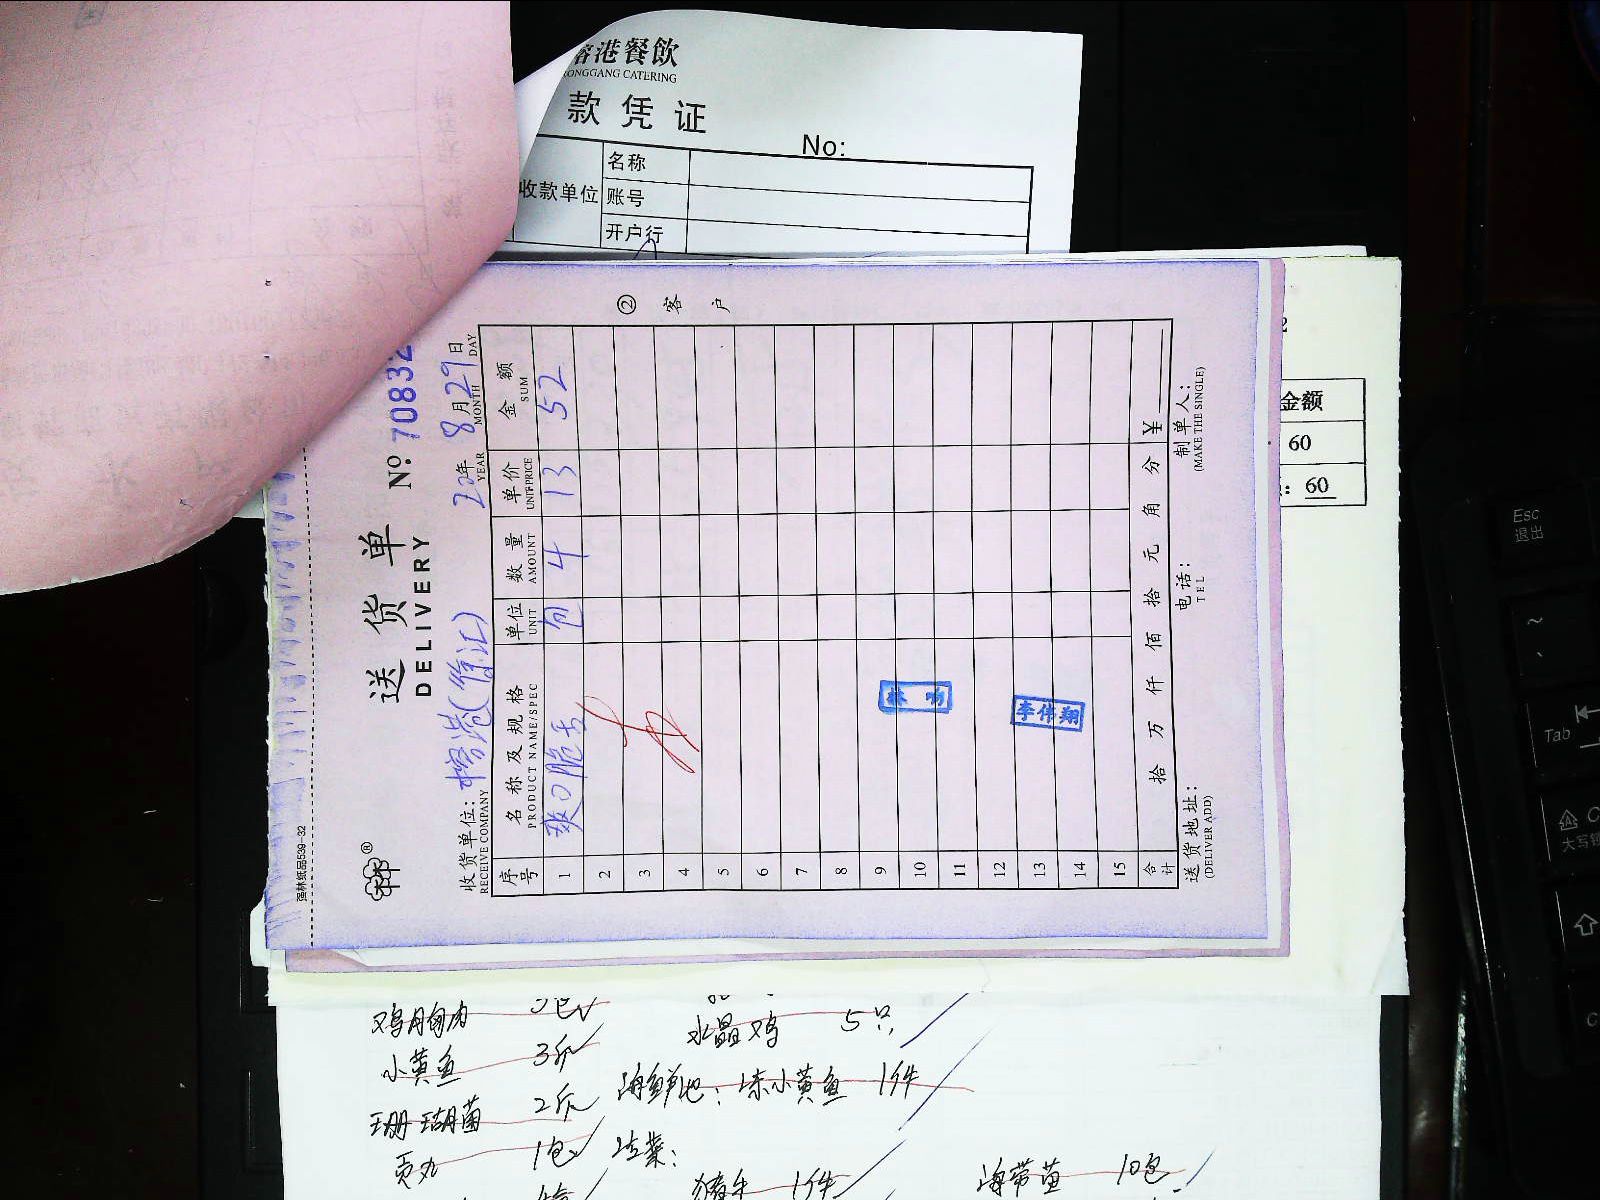 港餐飲
ONGGANG CATERING
款凭证
No:
收款单位
名称
账号
开户行
② 客户
强林纸品539-32
®
送货单
DELIVERY
No. 70832
收货单位: 榕港(徐汇)
RECEIVE COMPANY
22年 8月29日
YEAR MONTH DAY
序号 名称及规格 单位 数量 单价 金额
PRODUCT NAME/SPEC UNIT AMOUNT UNIT PRICE SUM
1 爽口脆舌 包 4 13 52
2
3
4
5
6
7
8
9
10
11
12
13
14
15
李伟翔
合计 拾 万 仟 佰 拾 元 角 分 ¥
送货地址: 电话: 制单人:
(DELIVER ADD) TEL (MAKE THE SINGLE)
金额
60
: 60
鸡胸肉 3包
水晶鸡 5只
小黄鱼 3斤
海鲜池: 冻小黄鱼 1件
珊瑚菌 2斤
贡丸 1包
海带苗 10包
1件
Esc
退出
~
Tab
大写锁